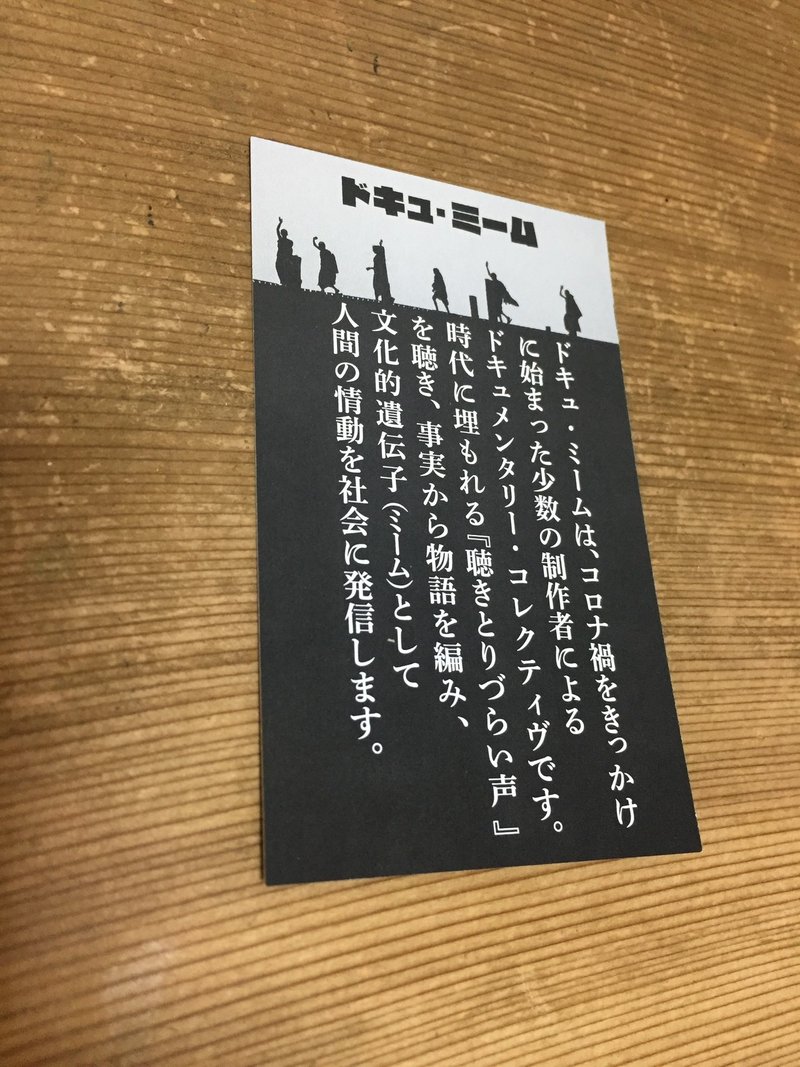 ドキュ・ミーム
ドキュ・ミームは、コロナ禍をきっかけ
に始まった少数の制作者による
ドキュメンタリー・コレクティヴです。
時代に埋もれる『聴きとりづらい声』
を聴き、事実から物語を編み、
文化的遺伝子（ミーム）として
人間の情動を社会に発信します。